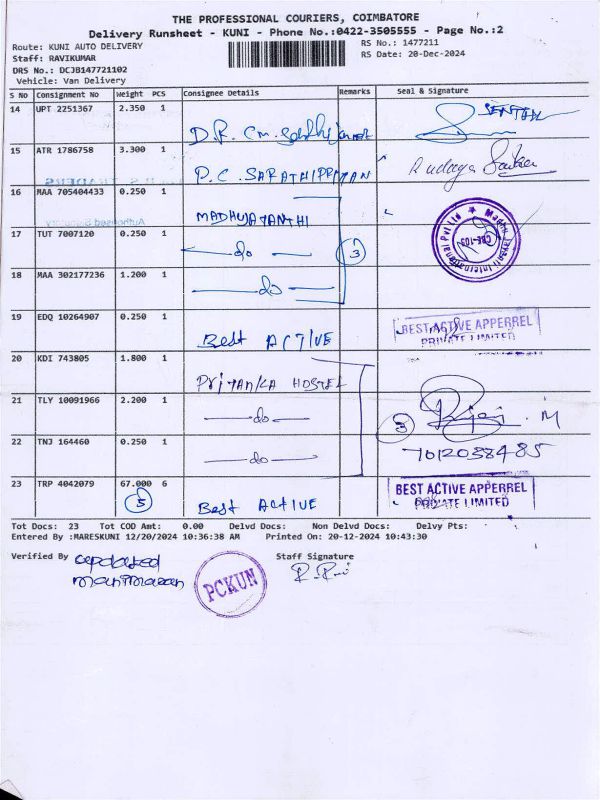 THE PROFESSIONAL COURIERS, COIMBATORE
Delivery Runsheet - KUNI - Phone No.:0422-3505555 - Page No.:2
Route: KUNI AUTO DELIVERY
RS No.: 1477211
Staff: RAVIKUMAR
RS Date: 20-Dec-2024
DRS No.: DCJB147721102
Vehicle: Van Delivery
S No Consignment No Weight PCS Consignee Details Remarks Seal & Signature
14 UPT 2251367 2.350 1
15 ATR 1786758 3.300 1 P.C. SARATHIPRIYAN
16 MAA 705404433 0.250 1 MADHUJAYANTHI
17 TUT 7007120 0.250 1 do 3
18 MAA 302177236 1.200 1 do
Madhu Jayanti International Pvt Ltd ★
CBE-103
19 EDQ 10264907 0.250 1 Best ACTIVE BEST ACTIVE APPERREL
PRIVATE LIMITED
20 KDI 743805 1.800 1 PRIYANKA HOSTEL
21 TLY 10091966 2.200 1 do 3
22 TNJ 164460 0.250 1 do 7012038485
23 TRP 4042079 67.000 6 Best ACTIVE BEST ACTIVE APPERREL
5 PRIVATE LIMITED
Tot Docs: 23 Tot COD Amt: 0.00 Delvd Docs: Non Delvd Docs: Delvy Pts:
Entered By :MARESKUNI 12/20/2024 10:36:38 AM Printed On: 20-12-2024 10:43:30
Verified By updated
Staff Signature
manimaran
PCKUN